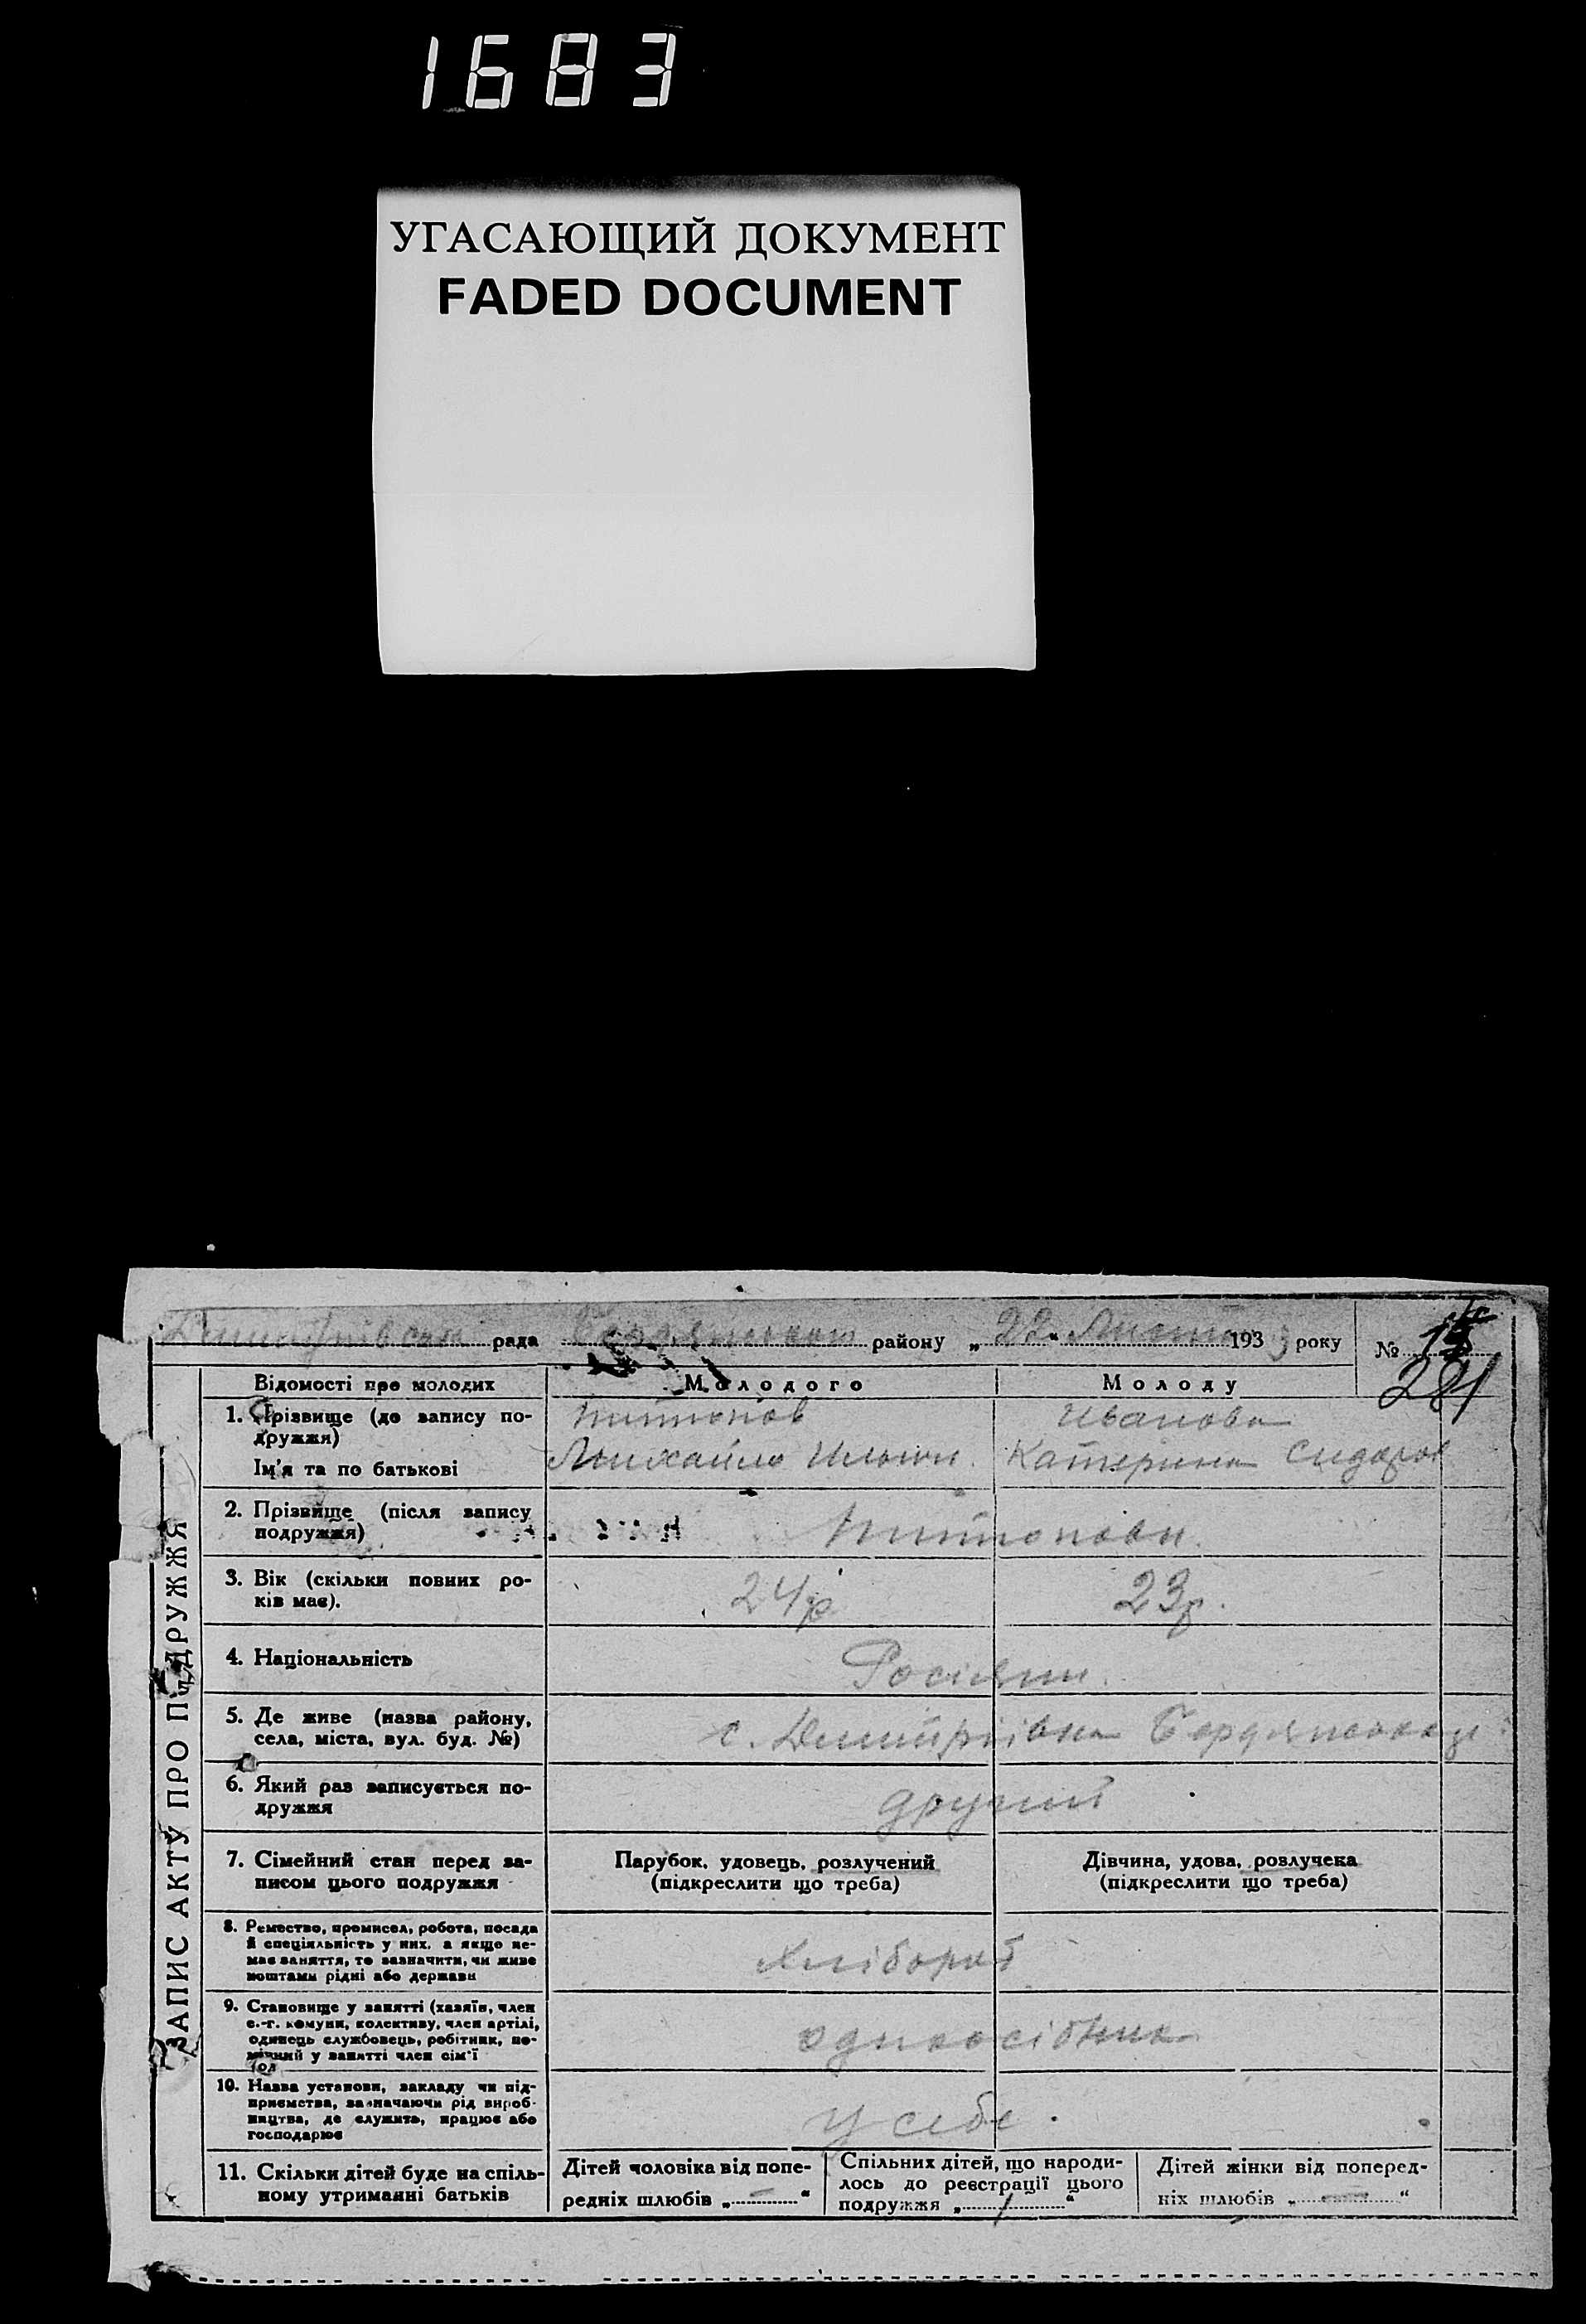 1683
УГАСАЮЩИЙ ДОКУМЕНТ
FADED DOCUMENT
рада районy „22“ 193 3 року №
281
ЗАПИС АКТУ ПРО ПОДРУЖЖЯ
Відомості про молодих Молодого Молоду
1. Прізвище (до запису по-
дружжя)
Иванова
Ім'я та по батькові
Михайло Катерина Сидоров
2. Прізвище (після запису
подружжя)
3. Вік (скільки повних ро-
ків має).
24 р. 23 р.
4. Національність
Росіяни
5. Де живе (назва району,
села, міста, вул. буд. №)
с. Дмитріівка
6. Який раз записується по-
дружжя
другий
7. Сімейний стан перед за-
писом цього подружжя
Парубок, удовець, розлучений
(підкреслити що треба)
Дівчина, удова, розлучека
(підкреслити що треба)
8. Ремество, промисел, робота, посада
й спеціяльність у них, а якщо не-
має заняття, то зазначити, чи живе
коштами рідні або держави
хлібороб
9. Становище у занятті (хазяїн, член
с.-г. комуни, колективу, член артілі,
одинець службовець, робітник, по-
мічний у занятті член сім'ї
10. Назва установи, закладу чи під-
приємства, зазначаючи рід вироб-
ництва, де служить, працює або
господарює
у себе.
11. Скільки дітей буде на спіль-
ному утриманні батьків
Дітей чоловіка від попе-
редніх шлюбів „—“
Спільних дітей, що народи-
лось до реєстрації цього
подружжя „1“
Дітей жінки від поперед-
ніх шлюбів „—“